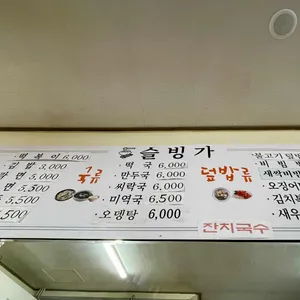 떡볶이 6,000
김밥 3,000
라면 5,000
면 5,500
5,500
,500
국류
슬빙가
·떡국 6,000
·만두국 6,000
·씨락국 6,000
·미역국 6,500
·오뎅탕 6,000
덮밥류
잔치국수
불고기덮밥
·비빔밥
새싹비빔
·오징어
·김치볶
·새우